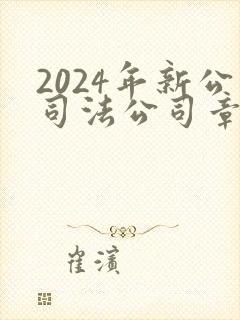 2024年新公
司法公司章
崔滨